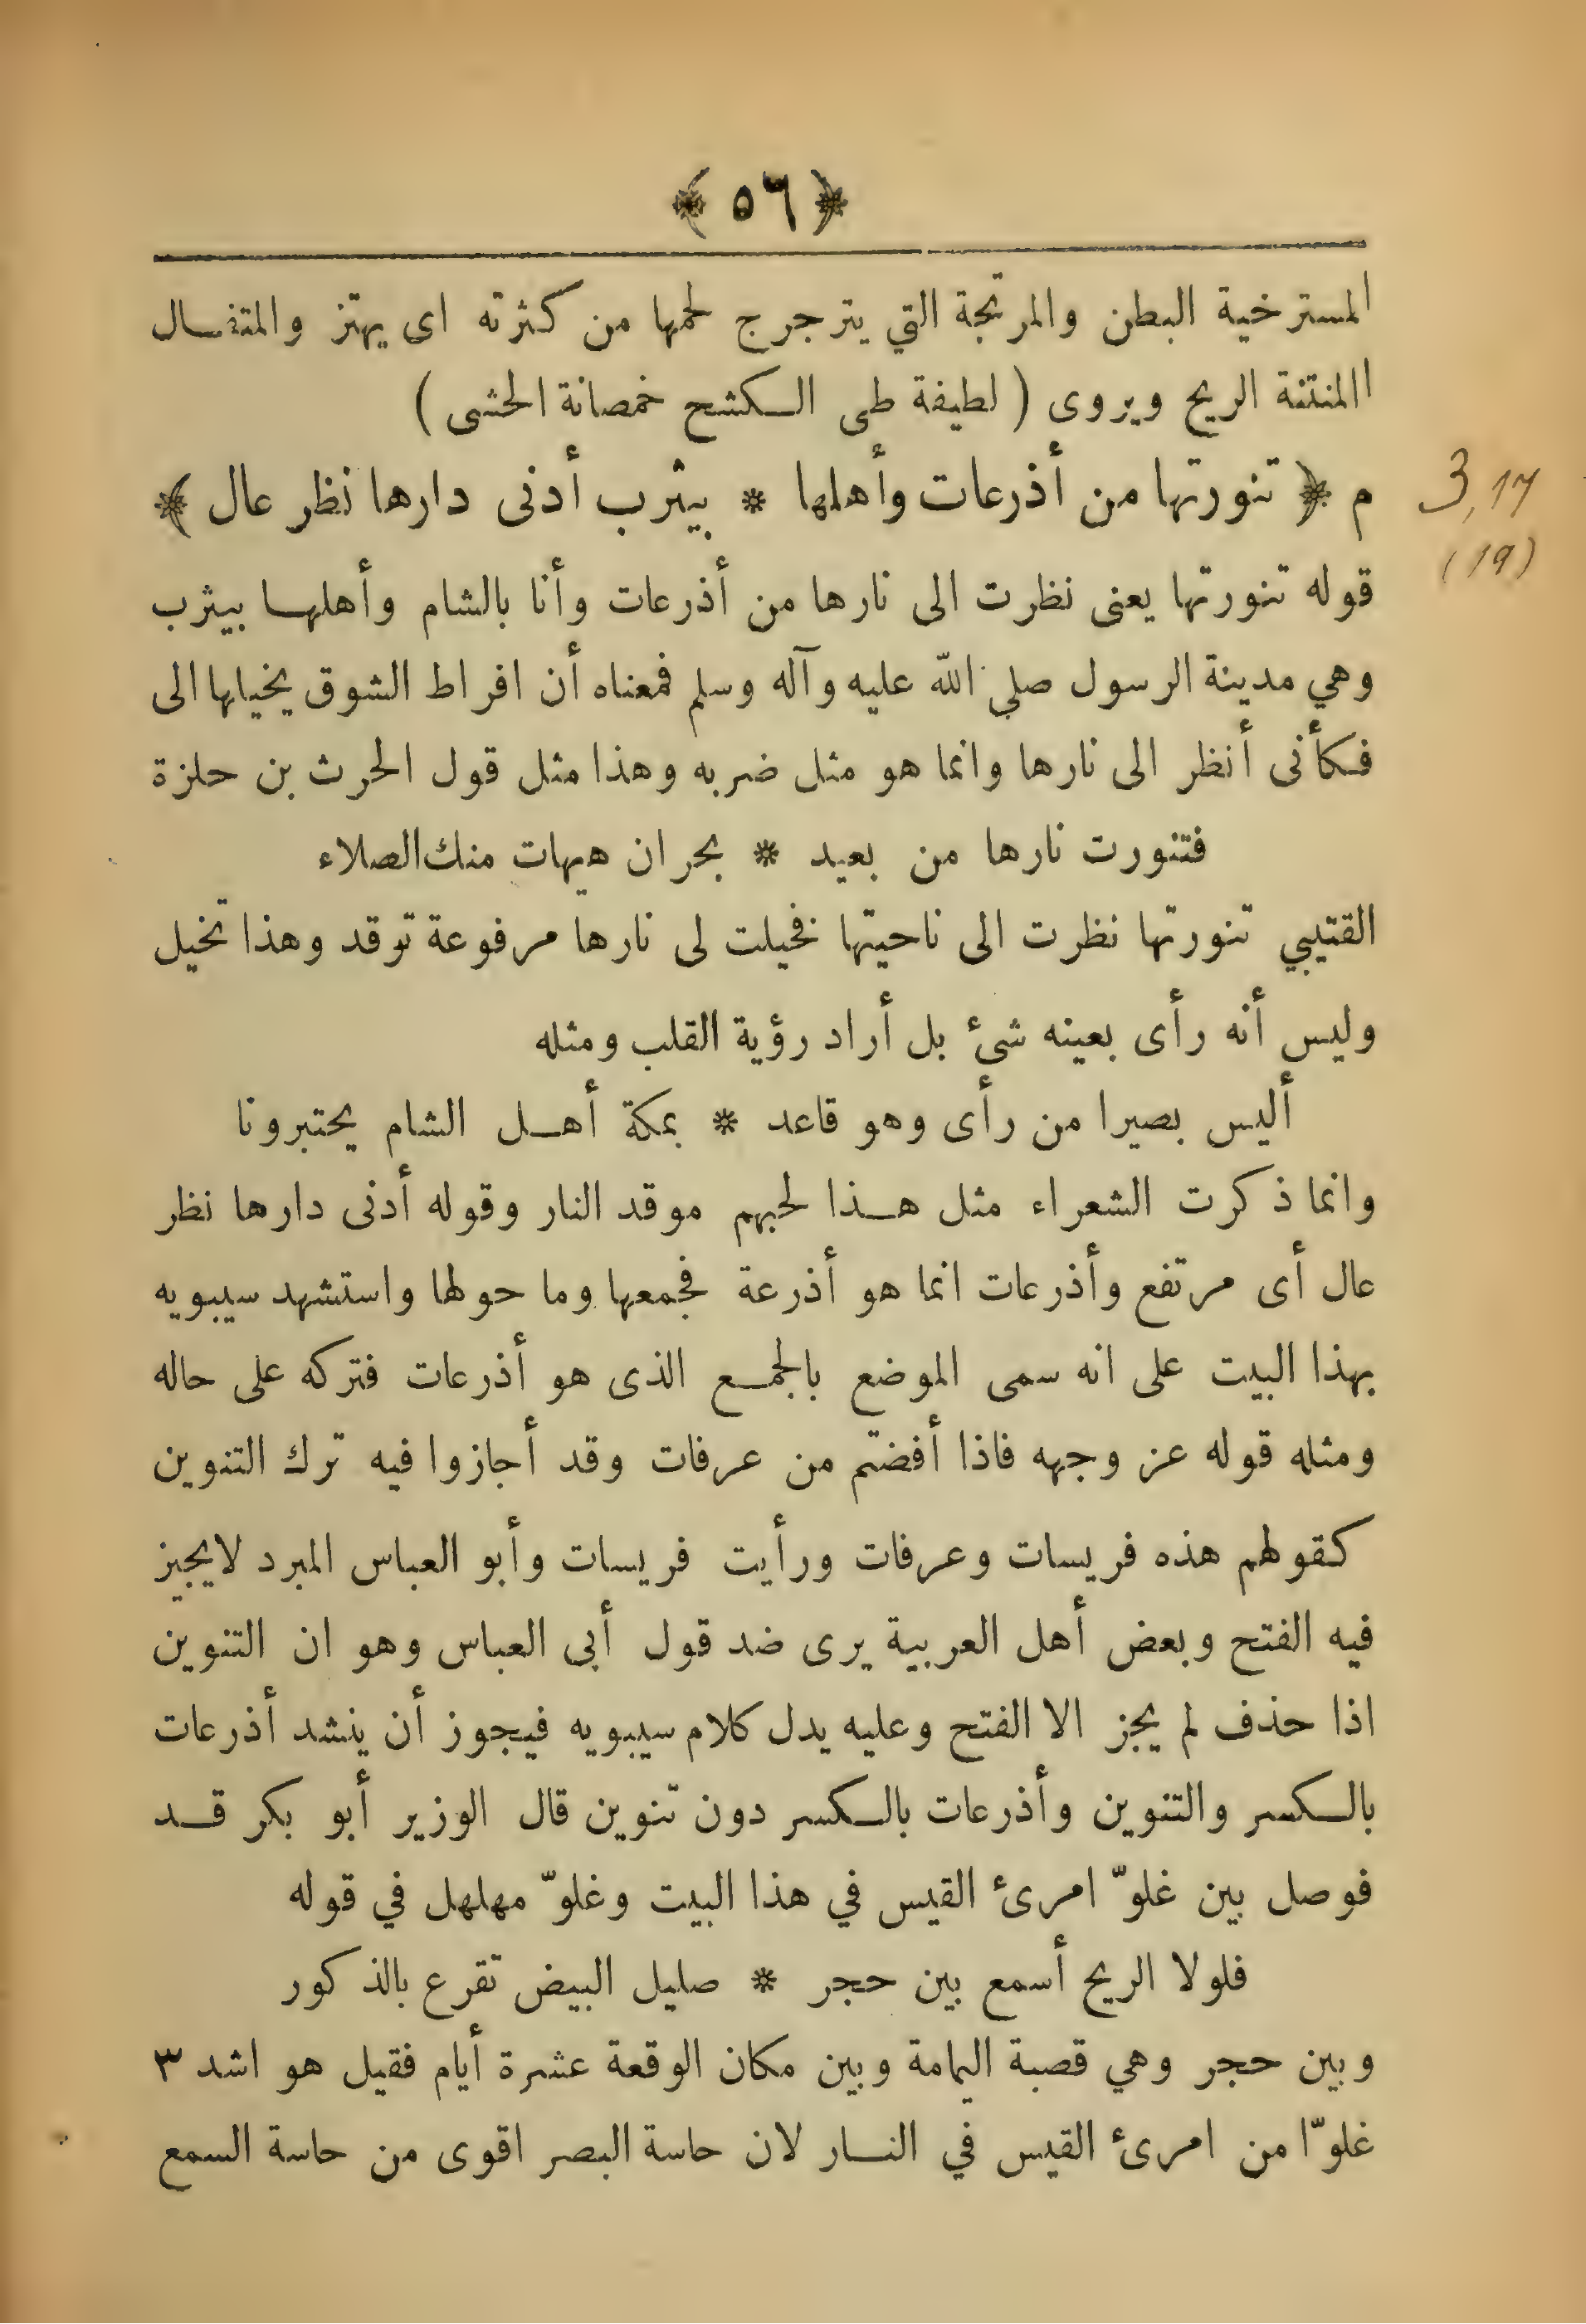 ﴿ ٥٦ ﴾
المسترخية البطن والمرتجة التي يترجرج لحمها من كثرته اى يهتز والمتفال
االمنتنة الريح ويروى ( لطيفة طى الكشح خمصانة الحشى )
م ﴿ تنورتها من أذرعات وأهلها * بيثرب أدنى دارها نظر عال ﴾
3,17
(19)
قوله تنورتها يعنى نظرت الى نارها من أذرعات وأنا بالشام وأهلها بيثرب
وهي مدينة الرسول صلي الله عليه وآله وسلم فمعناه أن افراط الشوق يخيلها الى
فكأنى أنظر الى نارها وانما هو مثل ضربه وهذا مثل قول الحرث بن حلزة
فتنورت نارها من بعيد * بحران هيهات منك الصلاء
القتيبي تنورتها نظرت الى ناحيتها فخيلت لى نارها مرفوعة توقد وهذا تخيل
وليس أنه رأى بعينه شئ بل أراد رؤية القلب ومثله
أليس بصيرا من رأى وهو قاعد * بمكة أهل الشام يختبرونا
وانما ذكرت الشعراء مثل هذا لحبهم موقد النار وقوله أدنى دارها نظر
عال أى مرتفع وأذرعات انما هو أذرعة فجمعها وما حولها واستشهد سيبويه
بهذا البيت على انه سمى الموضع بالجمع الذى هو أذرعات فتركه على حاله
ومثله قوله عز وجهه فاذا أفضتم من عرفات وقد أجازوا فيه ترك التنوين
كقولهم هذه فريسات وعرفات ورأيت فريسات وأبو العباس المبرد لايجيز
فيه الفتح وبعض أهل العربية يرى ضد قول أبى العباس وهو ان التنوين
اذا حذف لم يجز الا الفتح وعليه يدل كلام سيبويه فيجوز أن ينشد أذرعات
بالكسر والتنوين وأذرعات بالكسر دون تنوين قال الوزير أبو بكر قد
فوصل بين غلوّ امرئ القيس في هذا البيت وغلوّ مهلهل في قوله
فلولا الريح أسمع بين حجر * صليل البيض تقرع بالذكور
وبين حجر وهي قصبة اليمامة وبين مكان الوقعة عشرة أيام فقيل هو اشد ٣
غلوّا من امرئ القيس في النار لان حاسة البصر اقوى من حاسة السمع